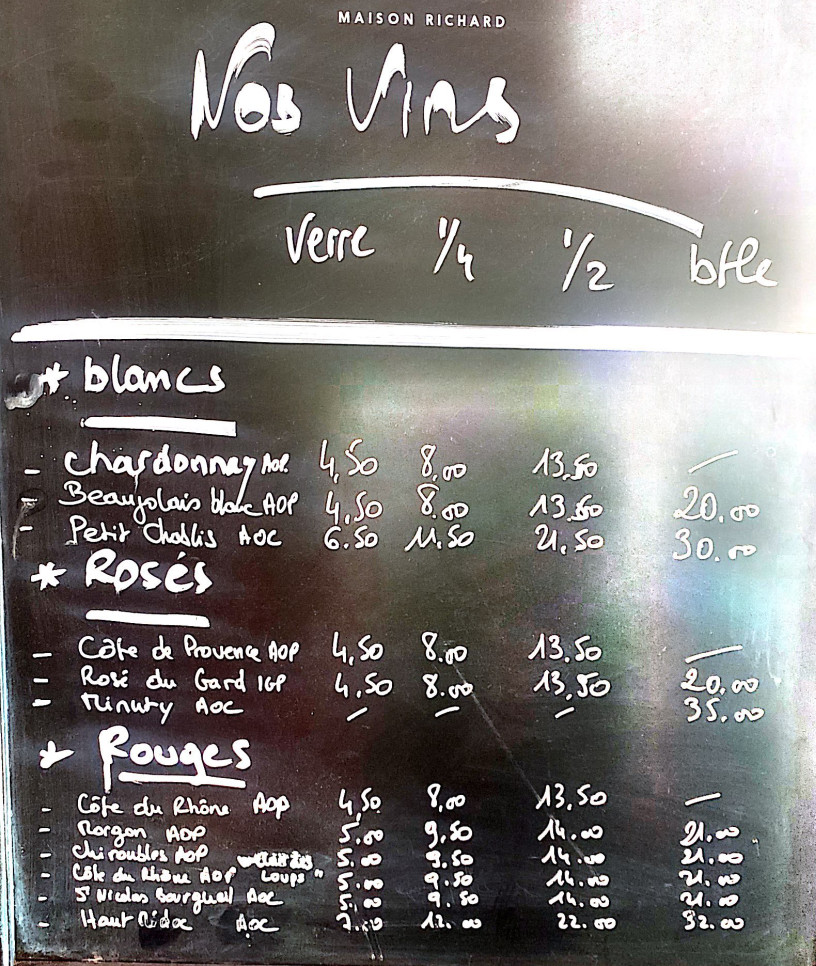 MAISON RICHARD
Nos Vins
Verre 1/4 1/2 btle
* blancs
- Chardonnay AOP. 4,50 8,00 13,50 —
- Beaujolais blanc AOP 4,50 8.00 13.50 20.00
- Petit Chablis AOC 6.50 11,50 21,50 30.00
* Rosés
- Côte de Provence AOP 4,50 8.00 13.50 —
- Rosé du Gard IGP 4,50 8.00 13,50 20,00
- Minuty AOC — — — 35.00
* Rouges
- Côte du Rhône AOP 4,50 8,00 13,50 —
- Morgon AOP 5.00 9,50 14.00 21.00
- Chiroubles AOP 5.00 9.50 14.00 21.00
- Côte du Rhône AOP Loups" 5.00 9.50 14.00 21.00
- St Nicolas Bourgueil AOC 5.00 9.50 14.00 21.00
- Haut Médoc AOC 7.00 12.00 22.00 32.00